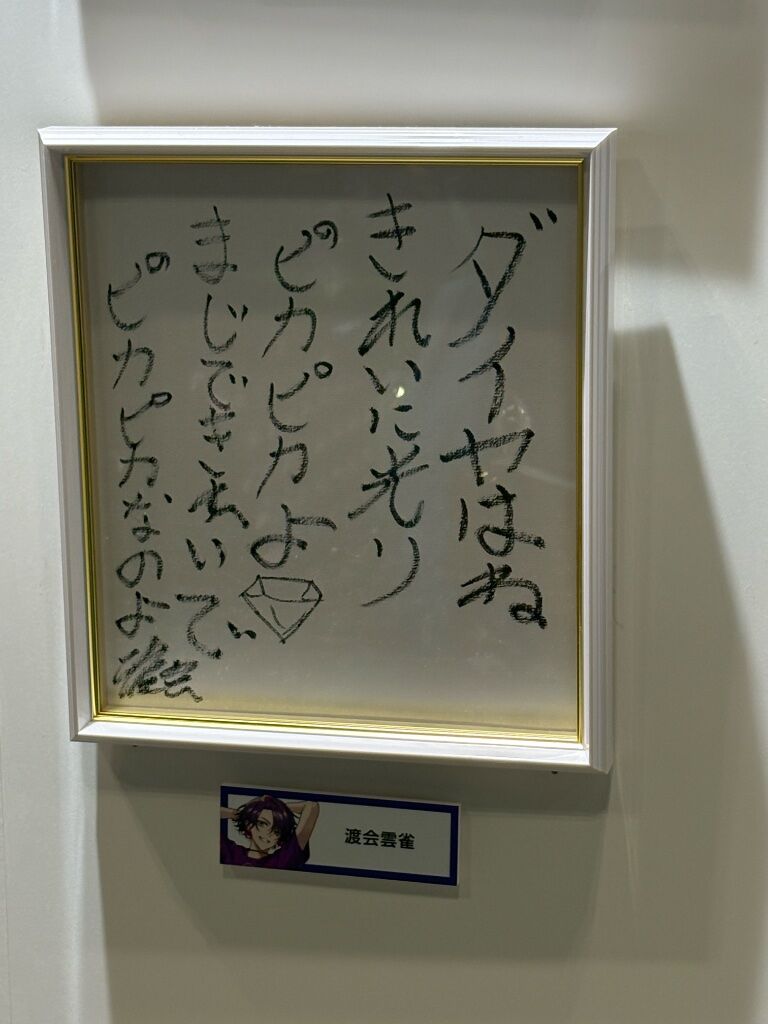 ダイヤはね
きれいに光り
ピカピカよ
まじできれいで
ピカピカなのよ
渡会雲雀